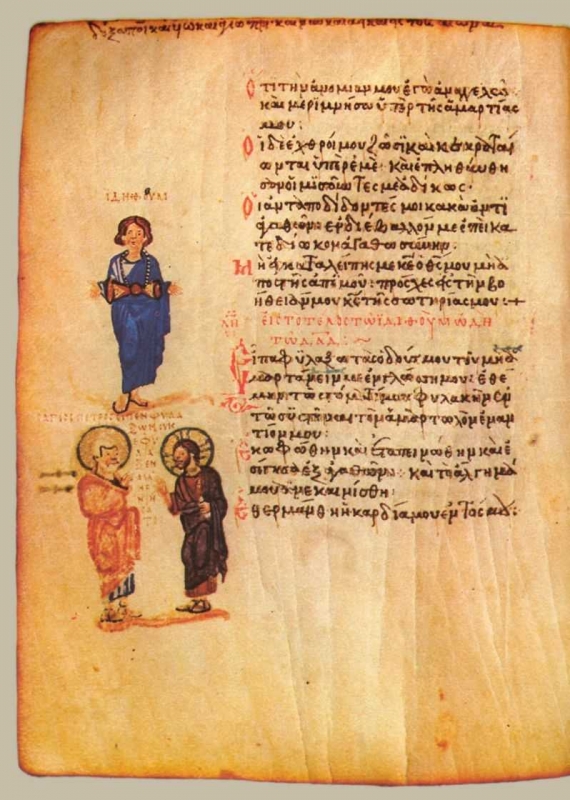 ΙΔΗΘΟΥΜ
Ὅτι τὴν ἀνομίαν μου ἐγὼ ἀναγγελῶ
καὶ μεριμνήσω ὑπὲρ τῆς ἁμαρτίας
μου:
Οἱ δὲ ἐχθροί μου ζῶσι καὶ κεκραταί
ωνται ὑπὲρ ἐμέ· καὶ ἐπληθύνθη
σαν οἱ μισοῦντές με ἀδίκως·
Οἱ ἀνταποδιδόντες μοι κακὰ ἀντὶ
ἀγαθῶν· ἐνδιέβαλλόν με ἐπεὶ κα
τεδίωκον ἀγαθωσύνην·
Μὴ ἐγκαταλείπῃς με κε ὁ θς μου μὴ ἀ
ποστῇς ἀπ' ἐμοῦ: πρόσχες εἰς τὴν βο
ήθειάν μου κε τῆς σωτηρίας μου:+
ΛΗ ΕΙΣ ΤΟ ΤΕΛΟΣ ΤΩ ΙΔΙΘΟΥΜ ΩΔΗ
ΤΩ ΔΑΔ:
Εἶπα φυλάξω τὰς ὁδούς μου τοῦ μὴ ἁ
μαρτάνειν με ἐν γλώσσῃ μου: ἐθέ
μην τῷ στόματί μου φυλακὴν ἐν
τῷ συστῆναι τὸν ἁμαρτωλὸν ἐναν
τίον μου:
Ἐκωφώθην καὶ ἐταπεινώθην καὶ ἐ
σίγησα ἐξ ἀγαθῶν: καὶ τὸ ἄλγημά
μου ἀνεκαινίσθη:
Ἐθερμάνθη ἡ καρδία μου ἐντός μου: